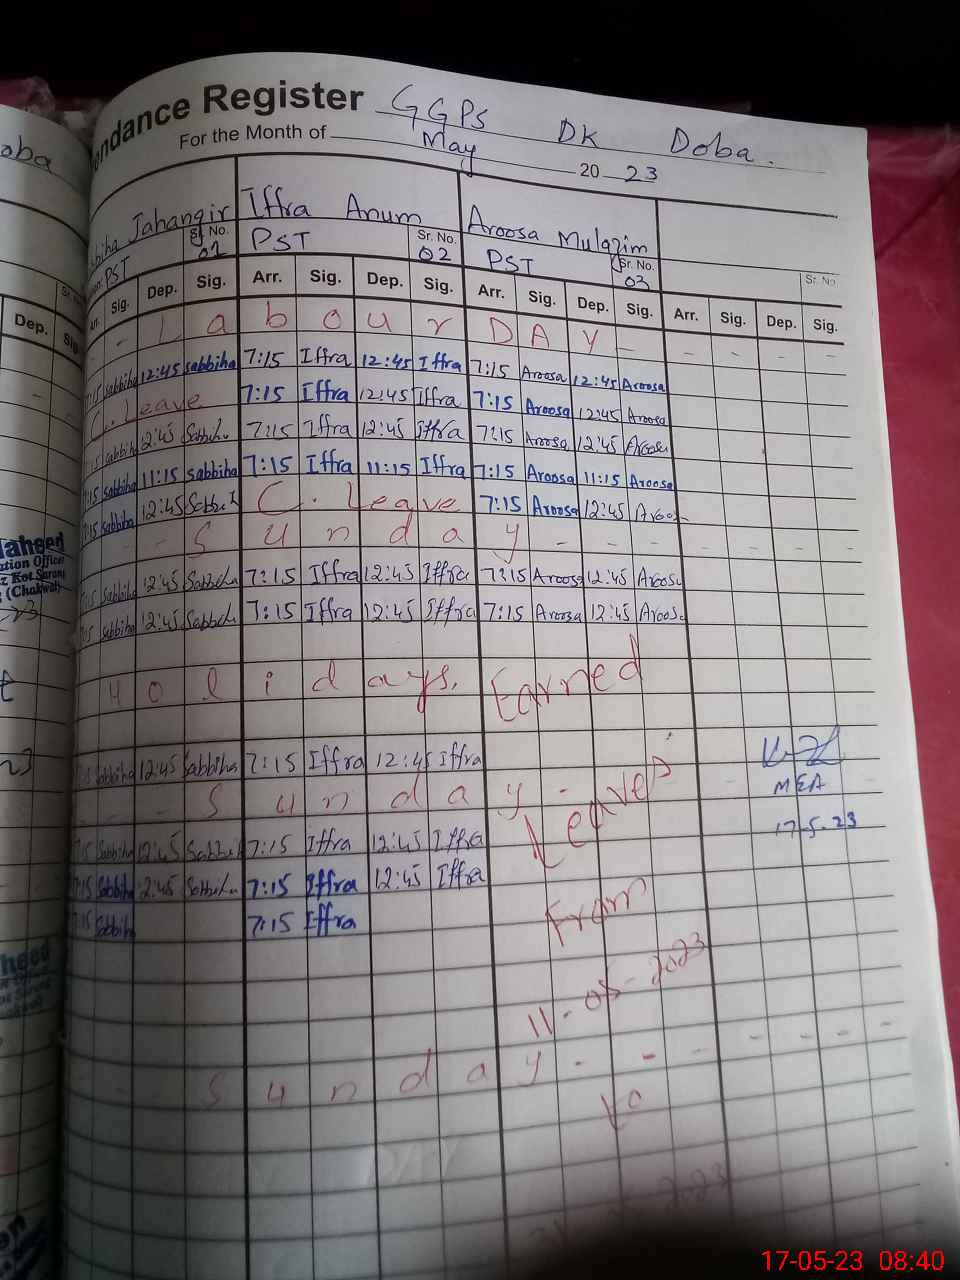 ndance Register GGPS DK Doba.
For the Month of May 20 23
oba
Jahangir Iffra Anum Aroosa Mulazim
PST Sr. No. 01 PST Sr. No. 02 PST Sr. No. 03 Sr. No
Dep. Sig. Arr. Sig. Dep. Sig. Arr. Sig. Dep. Sig. Arr. Sig. Dep. Sig. Arr. Sig. Dep. Sig.
Labour DAY
7:15 Sabbiha 12:45 Sabbiha 7:15 Iffra 12:45 Iffra 7:15 Aroosa 12:45 Aroosa
C. Leave 7:15 Iffra 12:45 Iffra 7:15 Aroosa 12:45 Aroosa
7:15 Sabbiha 12:45 Sabbiha 7:15 Iffra 12:45 Iffra 7:15 Aroosa 12:45 Aroosa
7:15 Sabbiha 11:15 Sabbiha 7:15 Iffra 11:15 Iffra 7:15 Aroosa 11:15 Aroosa
7:15 Sabbiha 12:45 C. Leave 7:15 Aroosa 12:45 Aroosa
- - Sunday - - - - - -
7:15 Sabbiha 12:45 Sabbiha 7:15 Iffra 12:45 Iffra 7:15 Aroosa 12:45 Aroosa
7:15 Sabbiha 12:45 7:15 Iffra 12:45 Iffra 7:15 Aroosa 12:45 Aroosa
Holidays. Earned
7:15 Sabbiha 12:45 Sabbiha 7:15 Iffra 12:45 Iffra
Sunday - Leave
MEA
17-5-23
7:15 Sabbiha 12:45 7:15 Iffra 12:45 Iffra
7:15 Sabbiha 2:45 Sabbiha 7:15 Iffra 12:45 Iffra
7:15 Sabbiha 7:15 Iffra
From
11-05-2023
Sunday - - - - - - -
to
2023
ation Officer
z Kot Sarang
(Chakwal)
17-05-23 08:40